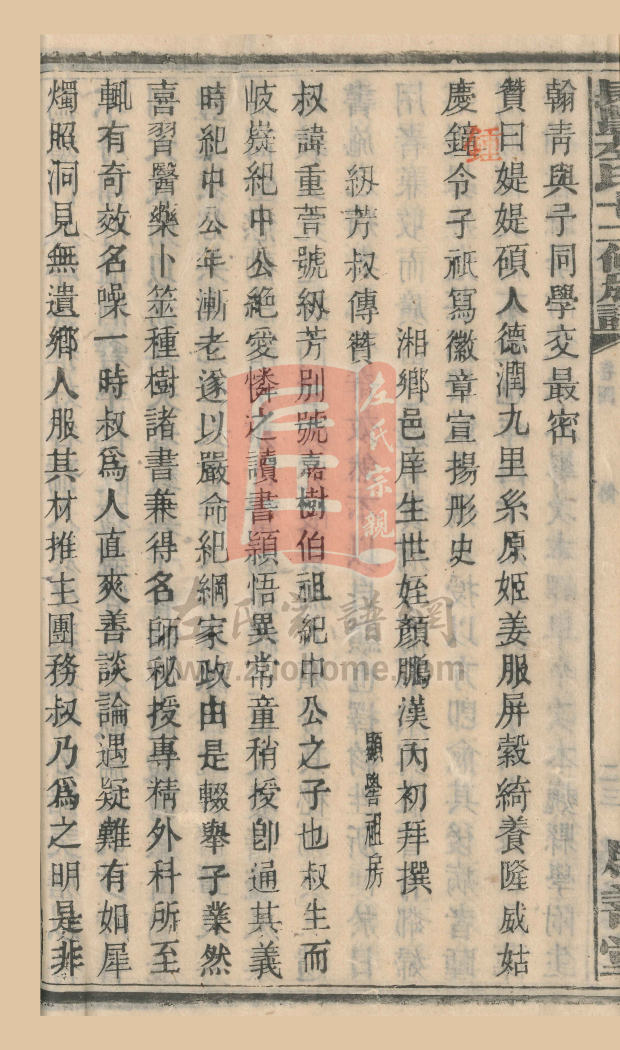 翰靑與予同學交最密
贊曰媞媞碩人德潤九里系原姬姜服屏縠綺養隆威姑
慶鐘令子祇寫徽章宣揚彤史
鍾
湘鄉邑庠生世姪顏鵬漢丙初拜撰
級芳叔傳贊 顯譽祖房
叔諱重萱號級芳別號嘉樹伯祖紀中公之子也叔生而
岐嶷紀中公絶愛憐之讀書穎悟異常童稍授卽通其義
時紀中公年漸老遂以嚴命紀綱家政由是輟舉子業然
喜習醫藥卜筮種樹諸書兼得名師秘授專精外科所至
輒有奇效名噪一時叔爲人直爽善談論遇疑難有如犀
燭照洞見無遺鄉人服其材推主團務叔乃爲之明是非
左氏宗親
左氏家譜網
www.zuohome.com